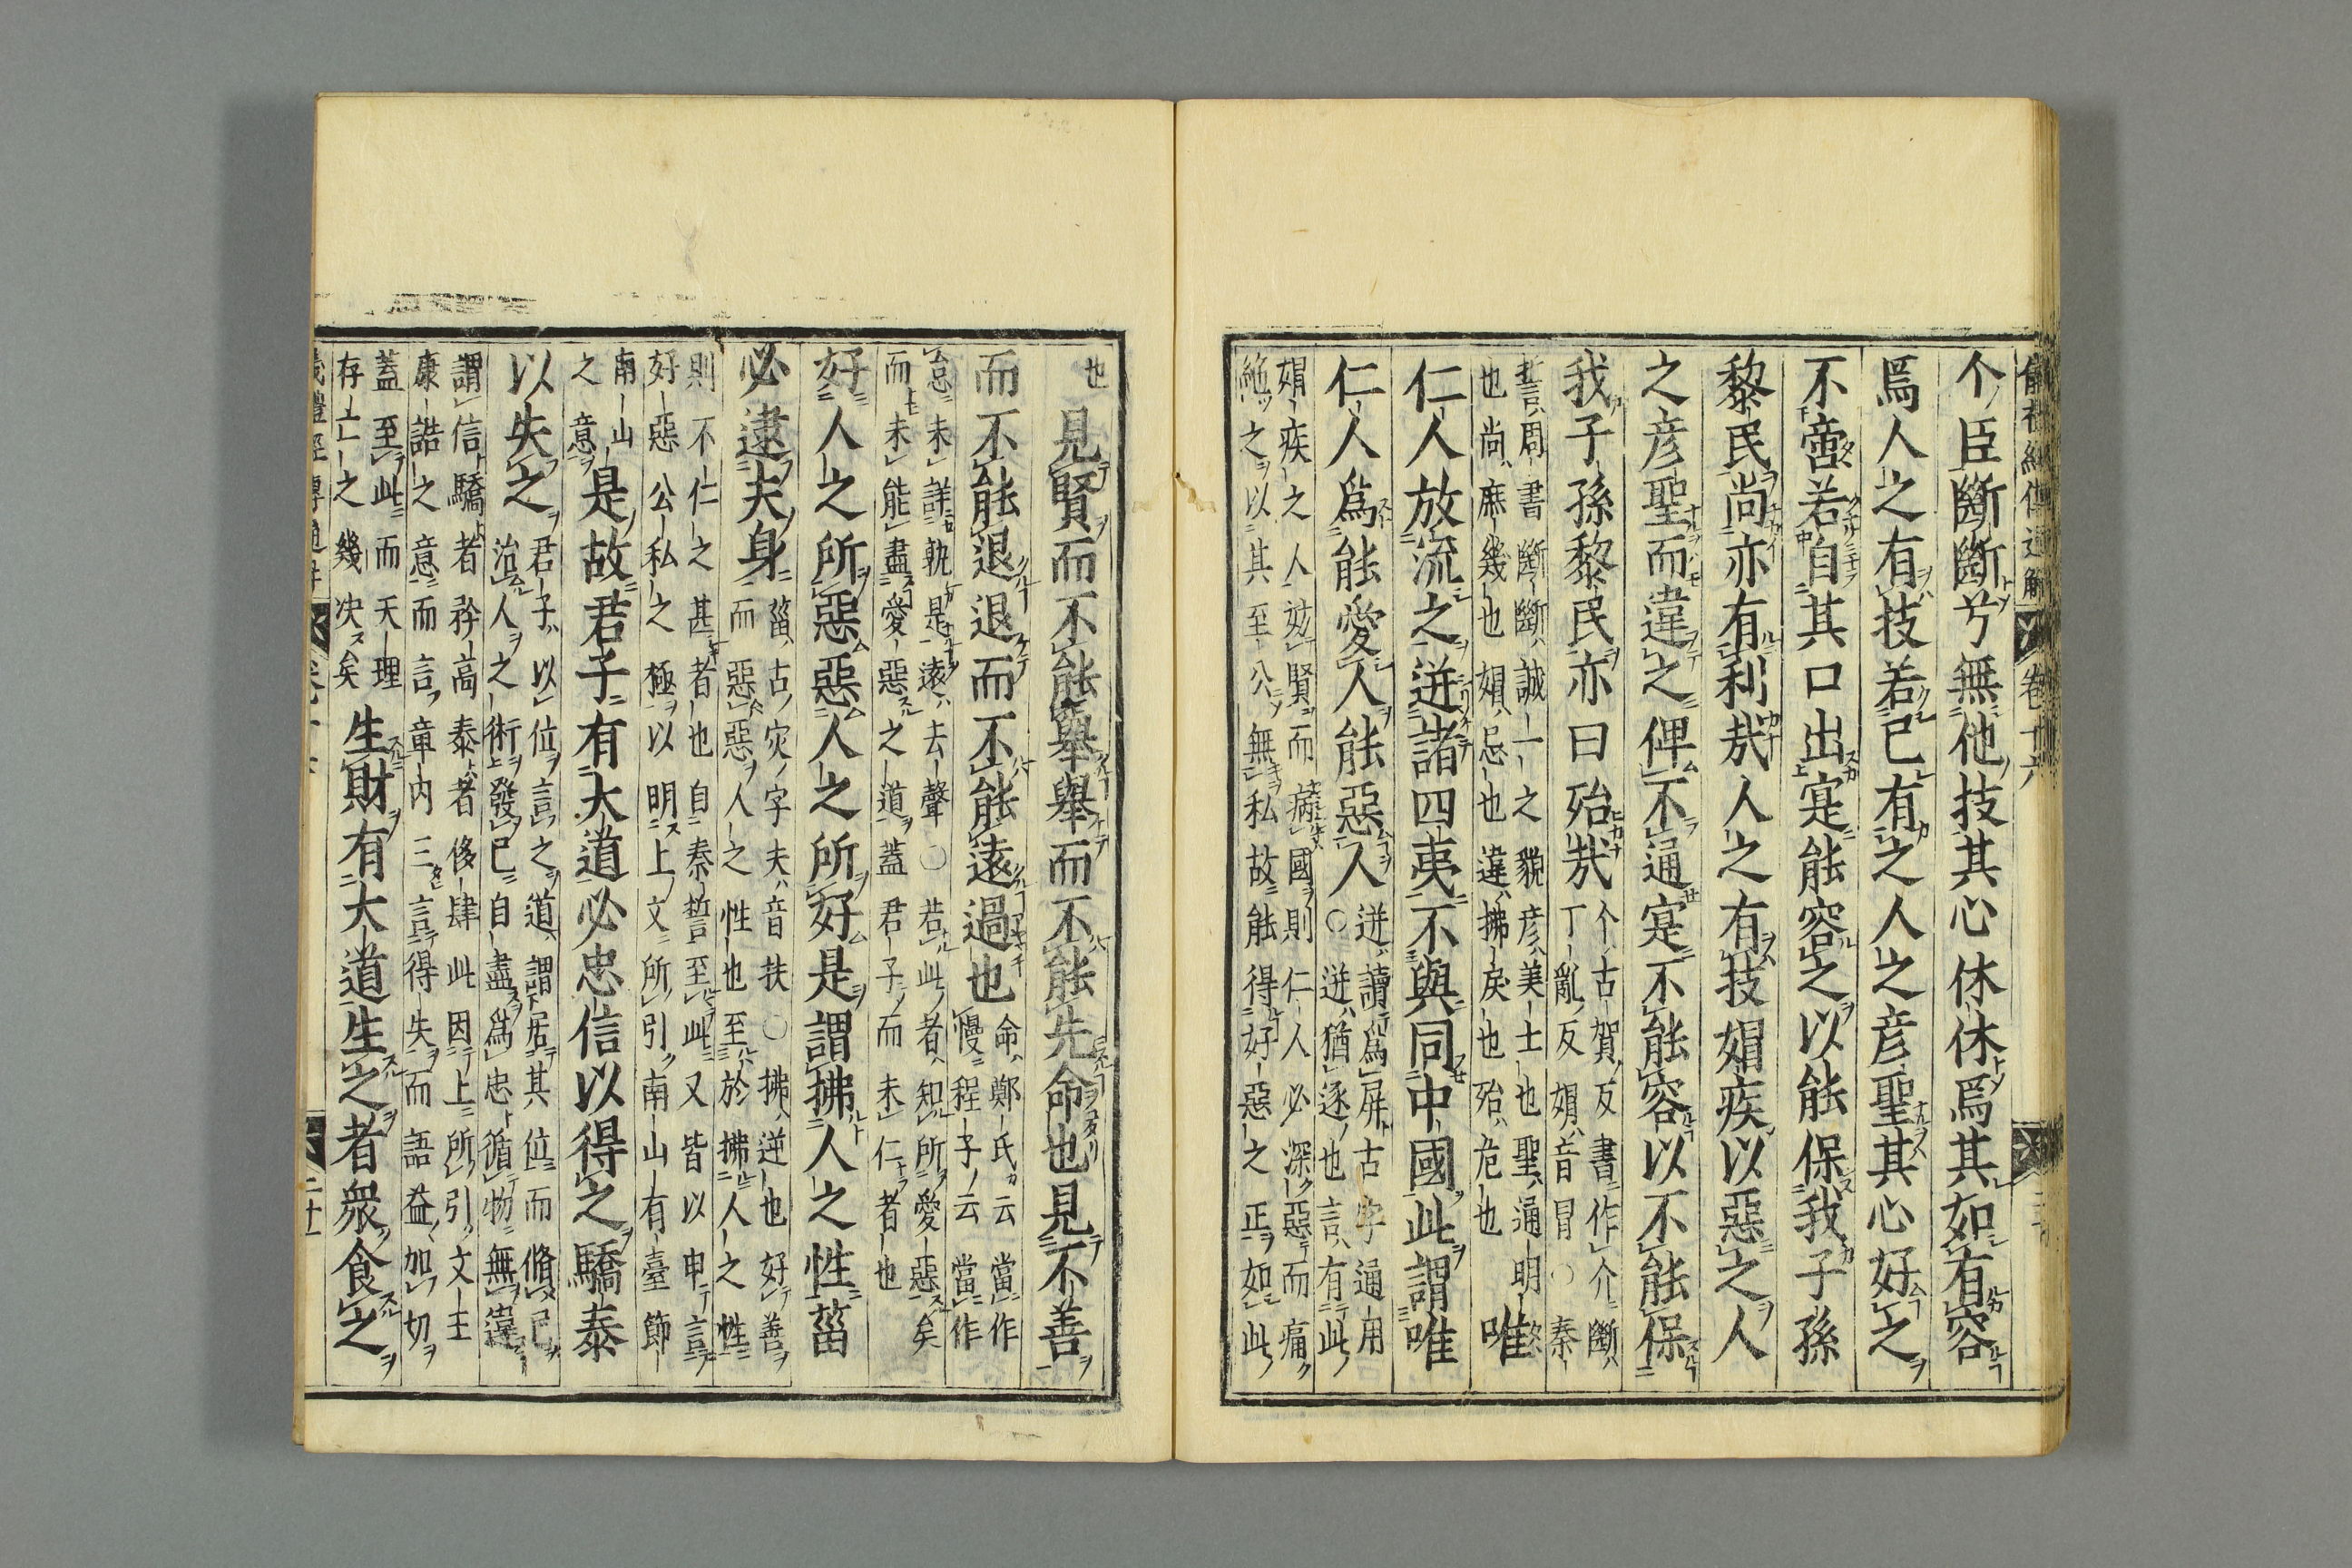 儀禮經傳通解 卷十六
个臣斷斷兮無他技其心休休焉其如有容
焉人之有技若己有之人之彦聖其心好之
不啻若自其口出寔能容之以能保我子孫
黎民尚亦有利哉人之有技媢疾以惡之人
之彦聖而違之俾不通寔不能容以不能保
我子孫黎民亦曰殆哉 个古賀反書作介斷
丁亂反媢音冒○秦
誓周書斷斷誠一之貌彦美士也聖通明
也尚庶幾也媢忌也違拂戾也殆危也 唯
仁人放流之迸諸四夷不與同中國此謂唯
仁人爲能愛人能惡人 迸讀爲屏古字通用
○迸猶逐也言有此
媢疾之人妨賢而病國則仁人必深惡而痛
絶之以其至公無私故能得好惡之正如此
也 見賢而不能舉舉而不能先命也見不善
而不能退退而不能遠過也 命鄭氏云當作
慢程子云當作
怠未詳孰是遠去聲○若此者知所愛惡矣
而未能盡愛惡之道蓋君子而未仁者也
好人之所惡惡人之所好是謂拂人之性菑
必逮夫身 菑古灾字夫音扶○拂逆也好善
而惡惡人之性也至於拂人之性
則不仁之甚者也自秦誓至此又皆以申言
好惡公私之極以明上文所引南山有臺節
南山
之意 是故君子有大道必忠信以得之驕泰
以失之 君子以位言之道謂居其位而脩己
治人之術發己自盡爲忠循物無違
謂信驕者矜高泰者侈肆此因上所引文王
康誥之意而言章内三言得失而語益加切
蓋至此而天理
存亡之幾决矣 生財有大道生之者衆食之